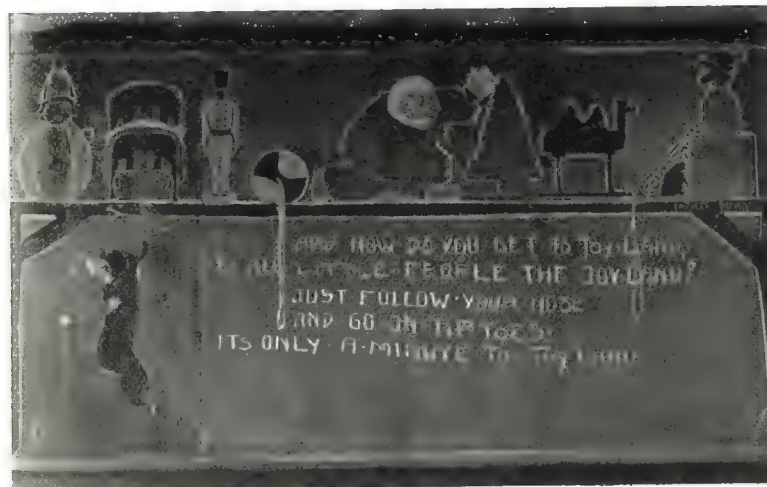 AND HOW DO YOU GET TO TOY-LAND,
LITTLE PEOPLE THE JOY-LAND?
JUST FOLLOW·YOUR NOSE
AND GO ON TIP TOES
ITS ONLY·A·MINUTE TO TOY LAND